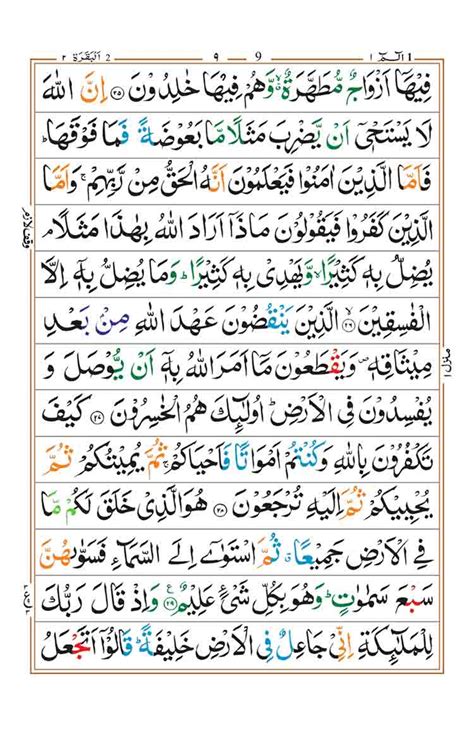 الٓمّٓ ١ 1 ٩ 9 اَلْبَقَرَة ٢ 2
فِيْهَآ اَزْوَاجٌ مُّطَهَّرَةٌ ۙ وَّهُمْ فِيْهَا خٰلِدُوْنَ ﴿٢٥﴾ اِنَّ اللّٰهَ
لَا يَسْتَحْىٖٓ اَنْ يَّضْرِبَ مَثَلًا مَّا بَعُوْضَةً فَمَا فَوْقَهَا ؕ
فَاَمَّا الَّذِيْنَ اٰمَنُوْا فَيَعْلَمُوْنَ اَنَّهُ الْحَقُّ مِنْ رَّبِّهِمْ ۚ وَاَمَّا
الَّذِيْنَ كَفَرُوْا فَيَقُوْلُوْنَ مَاذَآ اَرَادَ اللّٰهُ بِهٰذَا مَثَلًا ۘ
يُضِلُّ بِهٖ كَثِيْرًا ۙ وَّيَهْدِىْ بِهٖ كَثِيْرًا ؕ وَمَا يُضِلُّ بِهٖٓ اِلَّا
الْفٰسِقِيْنَ ﴿٢٦﴾ الَّذِيْنَ يَنْقُضُوْنَ عَهْدَ اللّٰهِ مِنْۢ بَعْدِ
مِيْثَاقِهٖ ۪ وَيَقْطَعُوْنَ مَآ اَمَرَ اللّٰهُ بِهٖٓ اَنْ يُّوْصَلَ وَ
يُفْسِدُوْنَ فِى الْاَرْضِ ؕ اُولٰٓئِكَ هُمُ الْخٰسِرُوْنَ ﴿٢٧﴾ كَيْفَ
تَكْفُرُوْنَ بِاللّٰهِ وَكُنْتُمْ اَمْوَاتًا فَاَحْيَاكُمْ ۚ ثُمَّ يُمِيْتُكُمْ ثُمَّ
يُحْيِيْكُمْ ثُمَّ اِلَيْهِ تُرْجَعُوْنَ ﴿٢٨﴾ هُوَ الَّذِىْ خَلَقَ لَكُمْ مَّا
فِى الْاَرْضِ جَمِيْعًا ۗ ثُمَّ اسْتَوٰٓى اِلَى السَّمَآءِ فَسَوّٰىهُنَّ
سَبْعَ سَمٰوٰتٍ ؕ وَهُوَ بِكُلِّ شَىْءٍ عَلِيْمٌ ﴿٢٩﴾ ع وَاِذْ قَالَ رَبُّكَ
لِلْمَلٰٓئِكَةِ اِنِّىْ جَاعِلٌ فِى الْاَرْضِ خَلِيْفَةً ؕ قَالُوْٓا اَتَجْعَلُ
منزل ١